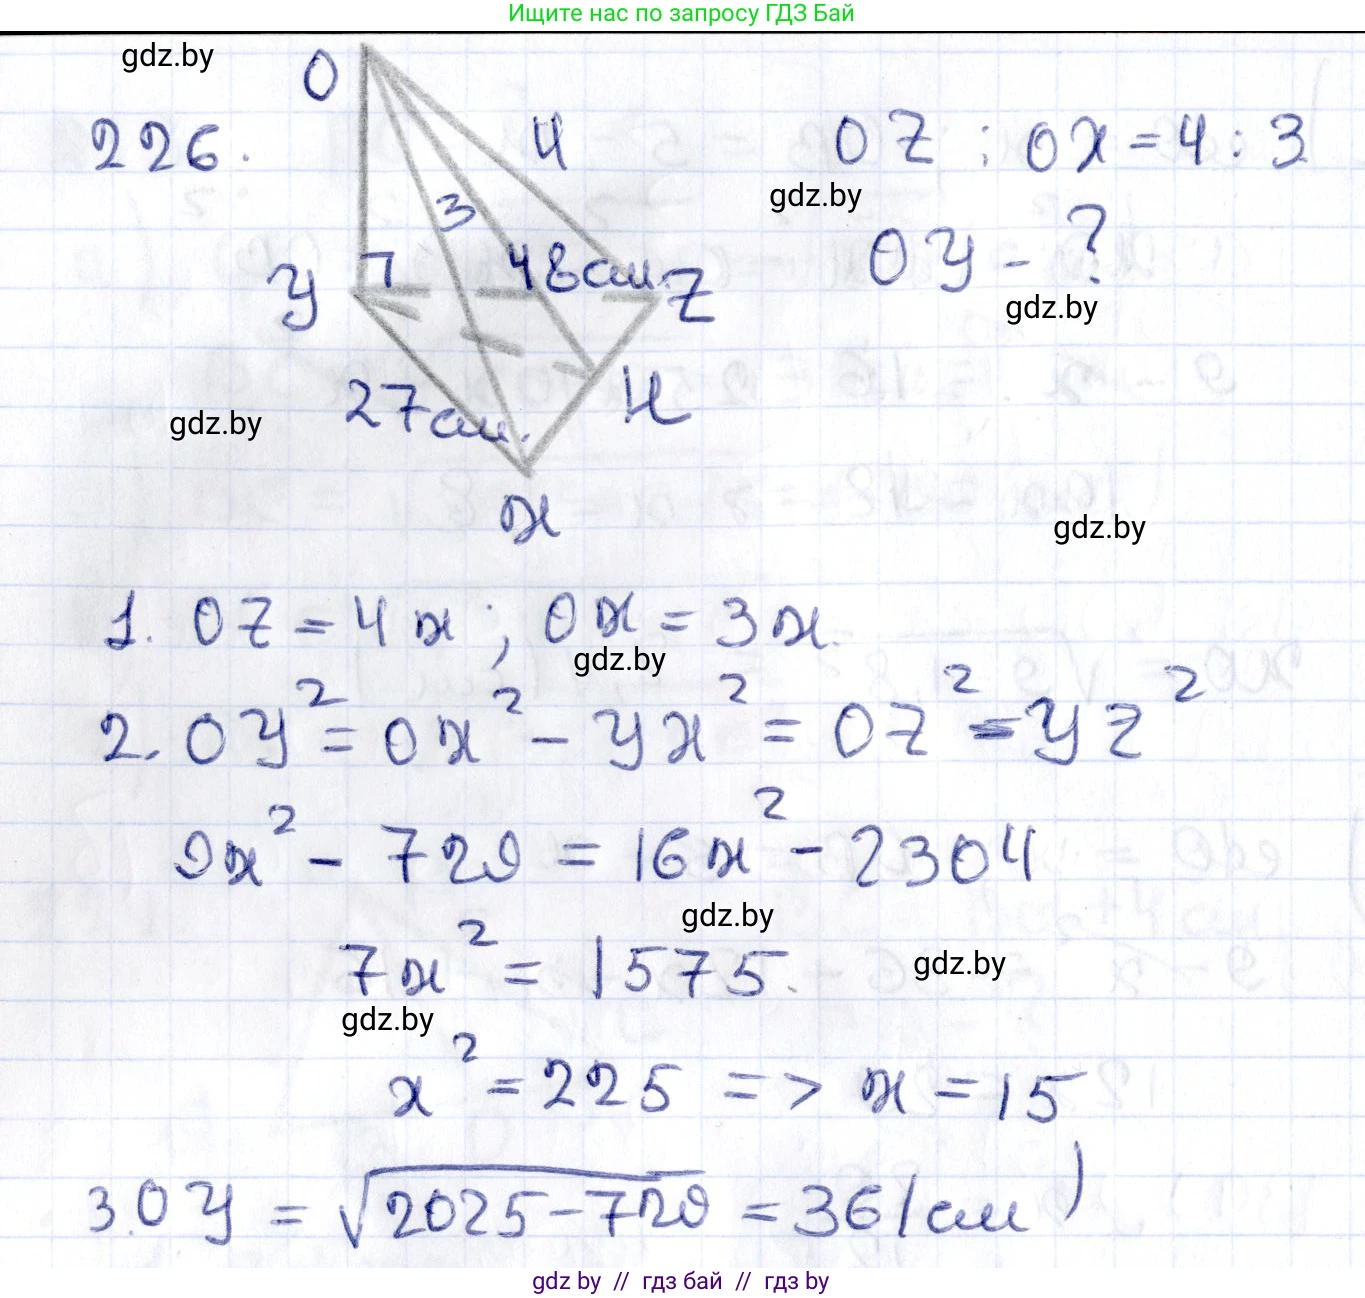 Ищите нас по запросу ГДЗ Бай
gdz.by
O
226.
4
OZ : OX = 4 : 3
gdz.by
3
OY - ?
48 см.
Y
Z
gdz.by
27 см.
H
gdz.by
X
gdz.by
1. OZ = 4x ; OX = 3x.
gdz.by
2. OY² = OX² - YX² = OZ² - YZ²
9x² - 729 = 16x² - 2304
gdz.by
7x² = 1575.
gdz.by
gdz.by
x² = 225 => x = 15
3. OY = √2025-729 = 36 (см)
gdz.by // гдз бай // гдз by